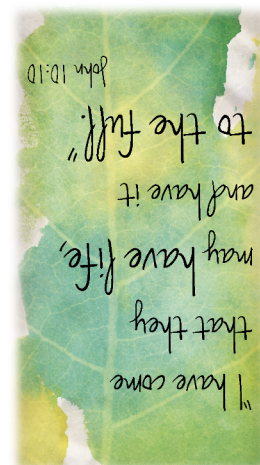 "I have come
that they
may have life,
and have it
to the full."
John 10:10